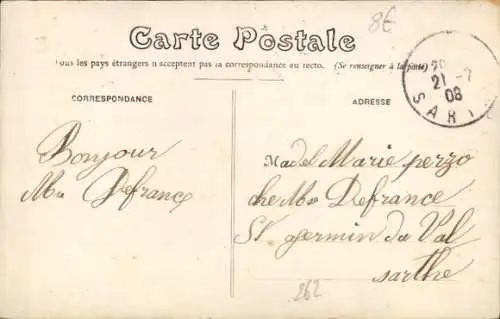 8€
Carte Postale
Tous les pays étrangers n'acceptent pas la correspondance au recto. (Se renseigner à la poste)
CORRESPONDANCE
ADRESSE
21 -7
08
SART
Bonjour
Mme Defrance
Madel Marie perzo
che Mme Defrance
St germin du Val
sarthe
262